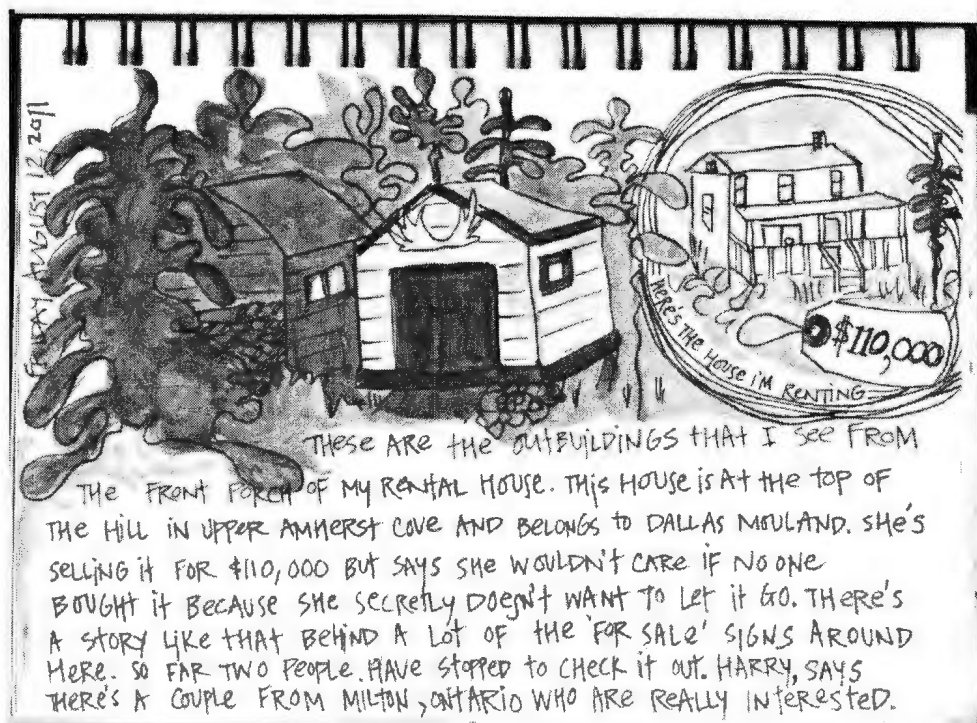 FRIDAY AUGUST 12, 2011
HERE'S THE HOUSE I'M RENTING
$110,000
THESE ARE THE OUTBUILDINGS THAT I SEE FROM
THE FRONT PORCH OF MY RENTAL HOUSE. THIS HOUSE IS AT THE TOP OF
THE HILL IN UPPER AMHERST COVE AND BELONGS TO DALLAS MOULAND. SHE'S
SELLING IT FOR $110,000 BUT SAYS SHE WOULDN'T CARE IF NO ONE
BOUGHT IT BECAUSE SHE SECRETLY DOESN'T WANT TO LET IT GO. THERE'S
A STORY LIKE THAT BEHIND A LOT OF THE 'FOR SALE' SIGNS AROUND
HERE. SO FAR TWO PEOPLE. HAVE STOPPED TO CHECK IT OUT. HARRY, SAYS
THERE'S A COUPLE FROM MILTON, ONTARIO WHO ARE REALLY INTERESTED.